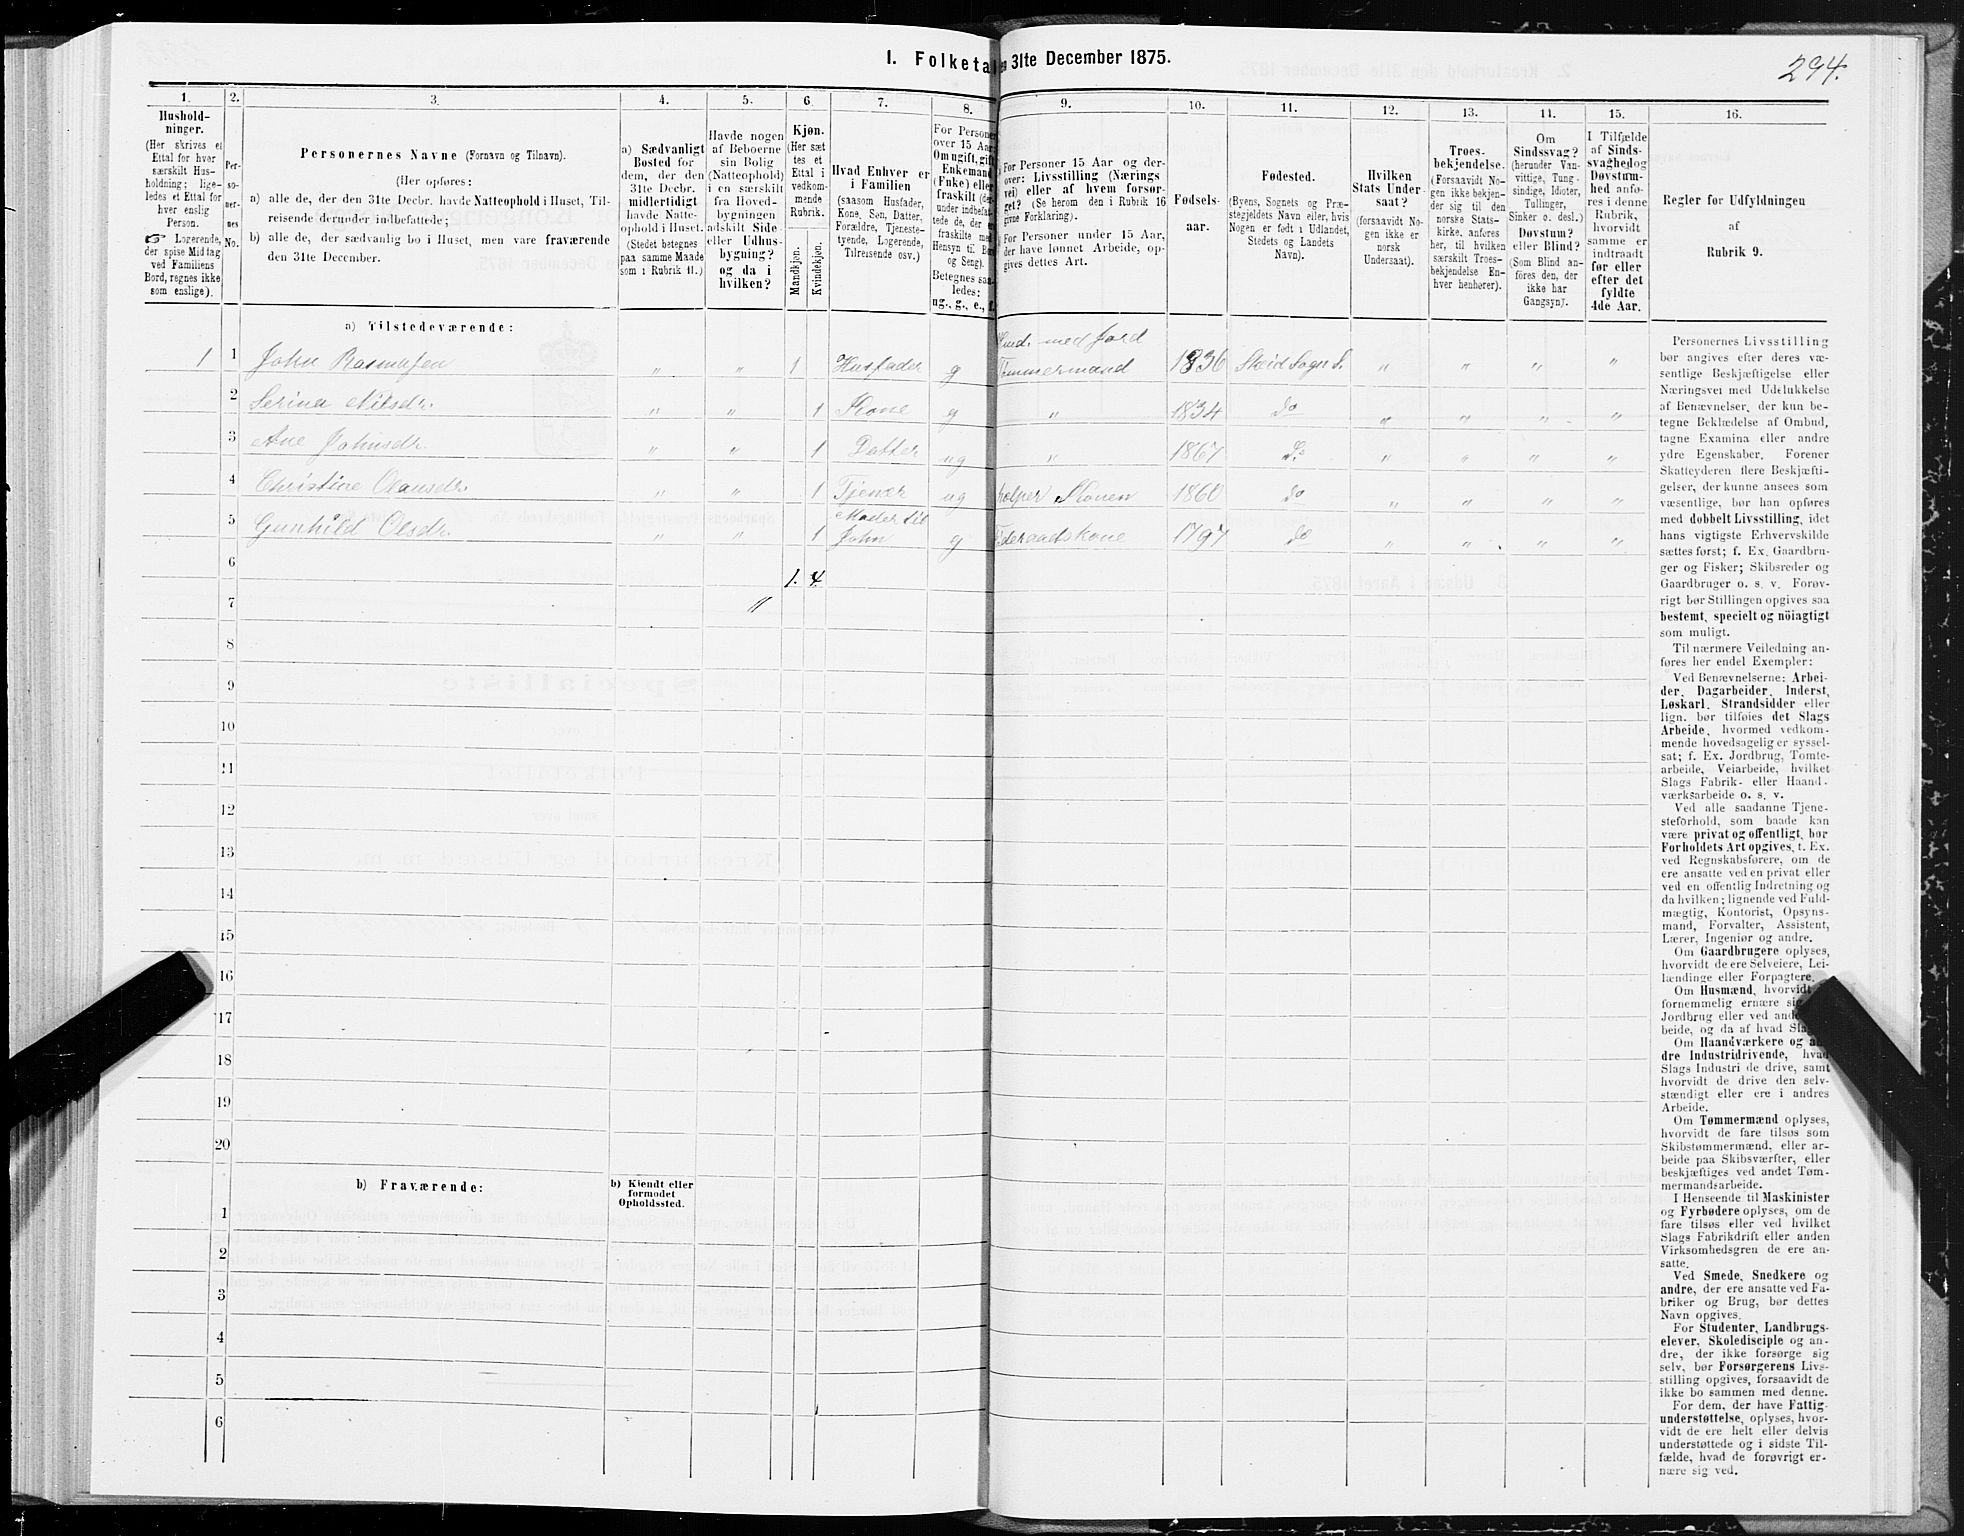 I. Folketal
en 31te December 1875.
294.
1.
2.
3.
4.
5.
6.
7.
8.
9.
10.
11.
12.
13.
14.
15.
16.
Hushold-
ninger.
(Her skrives et
Ettal for hver
særskilt Hus-
holdning; lige-
ledes et Ettal for
hver enslig
Person.
☞ Logerende,
der spise Midtag
ved Familiens
Bord, regnes ikke
som enslige).
Per-
so-
ner-
nes
No.
Personernes Navne (Fornavn og Tilnavn).
(Her opføres:
a) alle de, der den 31te Decbr. havde Natteophold i Huset, Til-
reisende derunder indbefattede;
b) alle de, der sædvanlig bo i Huset, men vare fraværende
den 31te December.
a) Sædvanligt
Bosted for
dem, der den
31te Decbr.
midlertidigt
havde Natte-
ophold i Huset.
(Stedet betegnes
paa samme Maade
som i Rubrik 11.)
Havde nogen
af Beboerne
sin Bolig
(Natteophold)
i en særskilt
fra Hoved-
bygningen
adskilt Side-
eller Udhus-
bygning?
og da i
hvilken?
Kjøn.
(Her sæt
tes et
Ettal i
vedkom-
mende
Rubrik.
Mandkjøn.
Kvindekjøn.
Hvad Enhver er
i Familien
(saasom Husfader,
Kone, Søn, Datter,
Forældre, Tjeneste-
tyende, Logerende,
Tilreisende osv.)
For Personer
over 15 Aar
Om ugift, gift,
Enkemand
(Enke) eller
fraskilt (der-
under indbefat-
tede de, der er
fraskilte med
Hensyn til Bord
og Seng).
Betegnes saa-
ledes:
ug., g., e., f.
For Personer 15 Aar og der-
over: Livsstilling (Nærings
vei) eller af hvem forsør-
get? (Se herom den i Rubrik 16
givne Forklaring).
For Personer under 15 Aar,
der have lønnet Arbeide, op-
gives dettes Art.
Fødsels-
aar.
Fødested.
(Byens, Sognets og Præ-
stegjeldets Navn eller, hvis
Nogen er født i Udlandet,
Stedets og Landets
Navn).
Hvilken
Stats Under-
saat?
(forsaavidt No-
gen ikke er
norsk
Undersaat).
Troes-
bekjendelse.
(Forsaavidt No-
gen ikke bekjen-
der sig til den
norske Stats-
kirke, anføres
her, til hvilken
særskilt Troes-
bekjendelse En-
hver henhører).
Om
Sindssvag?
(herunder Van-
vittige, Tung-
sindige, Idioter,
Tullinger,
Sinker o. desl.)
Døvstum?
eller Blind?
(Som Blind an-
føres den, der
ikke har
Gangsyn).
I Tilfælde
af Sinds-
svaghed og
Døvstum-
hed anfø-
res i denne
Rubrik,
hvorvidt
samme er
indtraadt
før eller
efter det
fyldte
4de Aar.
Regler for Udfyldningen
af
Rubrik 9.
a) Tilstedeværende:
1 1 John Rasmussen " " 1 Husfader g Husm. med Jord Tømmermand 1836 Skeid Sogn S. " " " "
2 Serina Nilsdr. " " 1 Kone g " 1834 do " " " "
3 Ane Johnsdr. " " 1 Datter ug " 1867 Do " " " "
4 Christine Olausdr. " " 1 Tjener ug hjelper Konen 1860 do " " " "
5 Gunhild Olsdr. " " 1 Moder til John g Føderaadskone 1797 do " " " "
6 1. 4.
7 "
8
9
10
11
12
13
14
15
16
17
18
19
20
b) Fraværende:
b) Kjendt eller
formodet
Opholdssted.
1
2
3
4
5
6
Personernes Livsstilling
bør angives efter deres væ-
sentlige Beskjæftigelse eller
Næringsvei med Udelukkelse
af Benævnelser, der kun be-
tegne Beklædelse af Ombud,
tagne Examina eller andre
ydre Egenskaber. Forener
Skatteyderen flere Beskjæfti-
gelser, der kunne ansees som
væsentlige, bør han opføres
med dobbelt Livsstilling, idet
hans vigtigste Erhvervskilde
sættes først; f. Ex. Gaardbru-
ger og Fisker; Skibsreder og
Gaardbruger o. s. v. Forøv-
rigt bør Stillingen opgives saa
bestemt, specielt og nöiagtigt
som muligt.
Til nærmere Veiledning an-
føres her endel Exempler:
Ved Benævnelserne: Arbei-
der, Dagarbeider, Inderst,
Løskarl, Strandsidder eller
lign. bør tilføies det Slags
Arbeide, hvormed vedkom-
mende hovedsagelig er syssel-
sat; f. Ex. Jordbrug, Tomte-
arbeide, Veiarbeide, hvilket
Slags Fabrik- eller Haand-
værksarbeide o. s. v.
Ved alle saadanne Tjene-
steforhold, som baade kan
være privat og offentligt, bør
Forholdets Art opgives, t. Ex.
ved Regnskabsførere, om de
ere ansatte ved en privat eller
ved en offentlig Indretning og
da hvilken; lignende ved Fuld-
mægtig, Kontorist, Opsyns-
mand, Forvalter, Assistent,
Lærer, Ingeniør og andre.
Om Gaardbrugere oplyses,
hvorvidt de ere Selveiere, Lei-
lændinge eller Forpagtere.
Om Husmænd, hvorvidt
fornemmelig ernære sig
Jordbrug eller ved and
beide, og da af hvad Slags.
Om Haandværkere og an-
dre Industridrivende, hvad
Slags Industri de drive, samt
hvorvidt de drive den selv-
stændigt eller ere i andres
Arbeide.
Om Tømmermænd oplyses,
hvorvidt de fare tilsøs som
Skibstømmermænd, eller ar-
beide paa Skibsværfter, eller
beskjæftiges ved andet Tøm-
mermandsarbeide.
I Henseende til Maskinister
og Fyrbødere oplyses, om de
fare tilsøs eller ved hvilket
Slags Fabrikdrift eller anden
Virksomhedsgren de ere an-
satte.
Ved Smede, Snedkere og
andre, der ere ansatte ved Fa-
briker og Brug, bør dettes
Navn opgives.
For Studenter, Landbrugs-
elever, Skoledisciple og an-
dre, der ikke forsørge sig
selv, bør Forsørgerens Livs-
stilling opgives, forsaavidt de
ikke bo sammen med denne.
For dem, der have Fattig-
understøttelse, oplyses, hvor-
vidt de ere helt eller delvis
understøttede og i sidste Til-
fælde, hvad de forøvrigt er-
nære sig ved.